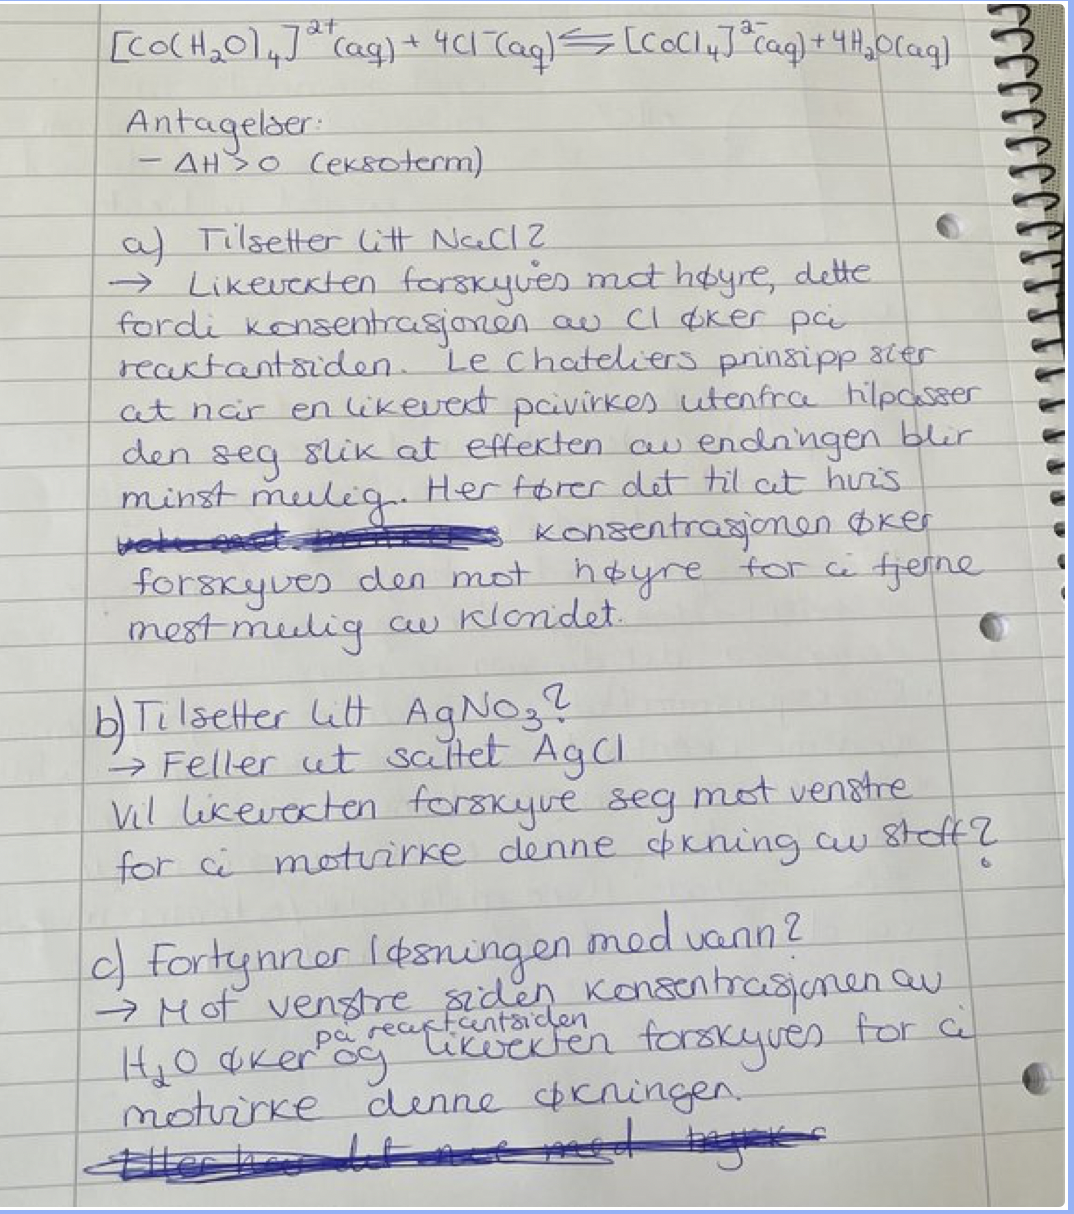 [Co(H₂O)₄]²⁺(aq) + 4Cl⁻(aq) ⇌ [CoCl₄]²⁻(aq) + 4H₂O(aq)
Antagelser:
- ΔH > 0 (eksoterm)
a) Tilsetter litt NaCl?
→ Likevekten forskyves mot høyre, dette
fordi konsentrasjonen av Cl øker på
reaktantsiden. Le Chateliers prinsipp sier
at når en likevekt påvirkes utenfra tilpasser
den seg slik at effekten av endringen blir
minst mulig. Her fører det til at hvis
konsentrasjonen øker
forskyves den mot høyre for å fjerne
mest mulig av kloridet.
b) Tilsetter litt AgNO₃?
→ Feller ut saltet AgCl
Vil likevekten forskyve seg mot venstre
for å motvirke denne økning av stoff?
c) Fortynner løsningen med vann?
→ Mot venstre siden konsentrasjonen av
H₂O øker på reaktantsiden og likevekten forskyves for å
motvirke denne økningen.